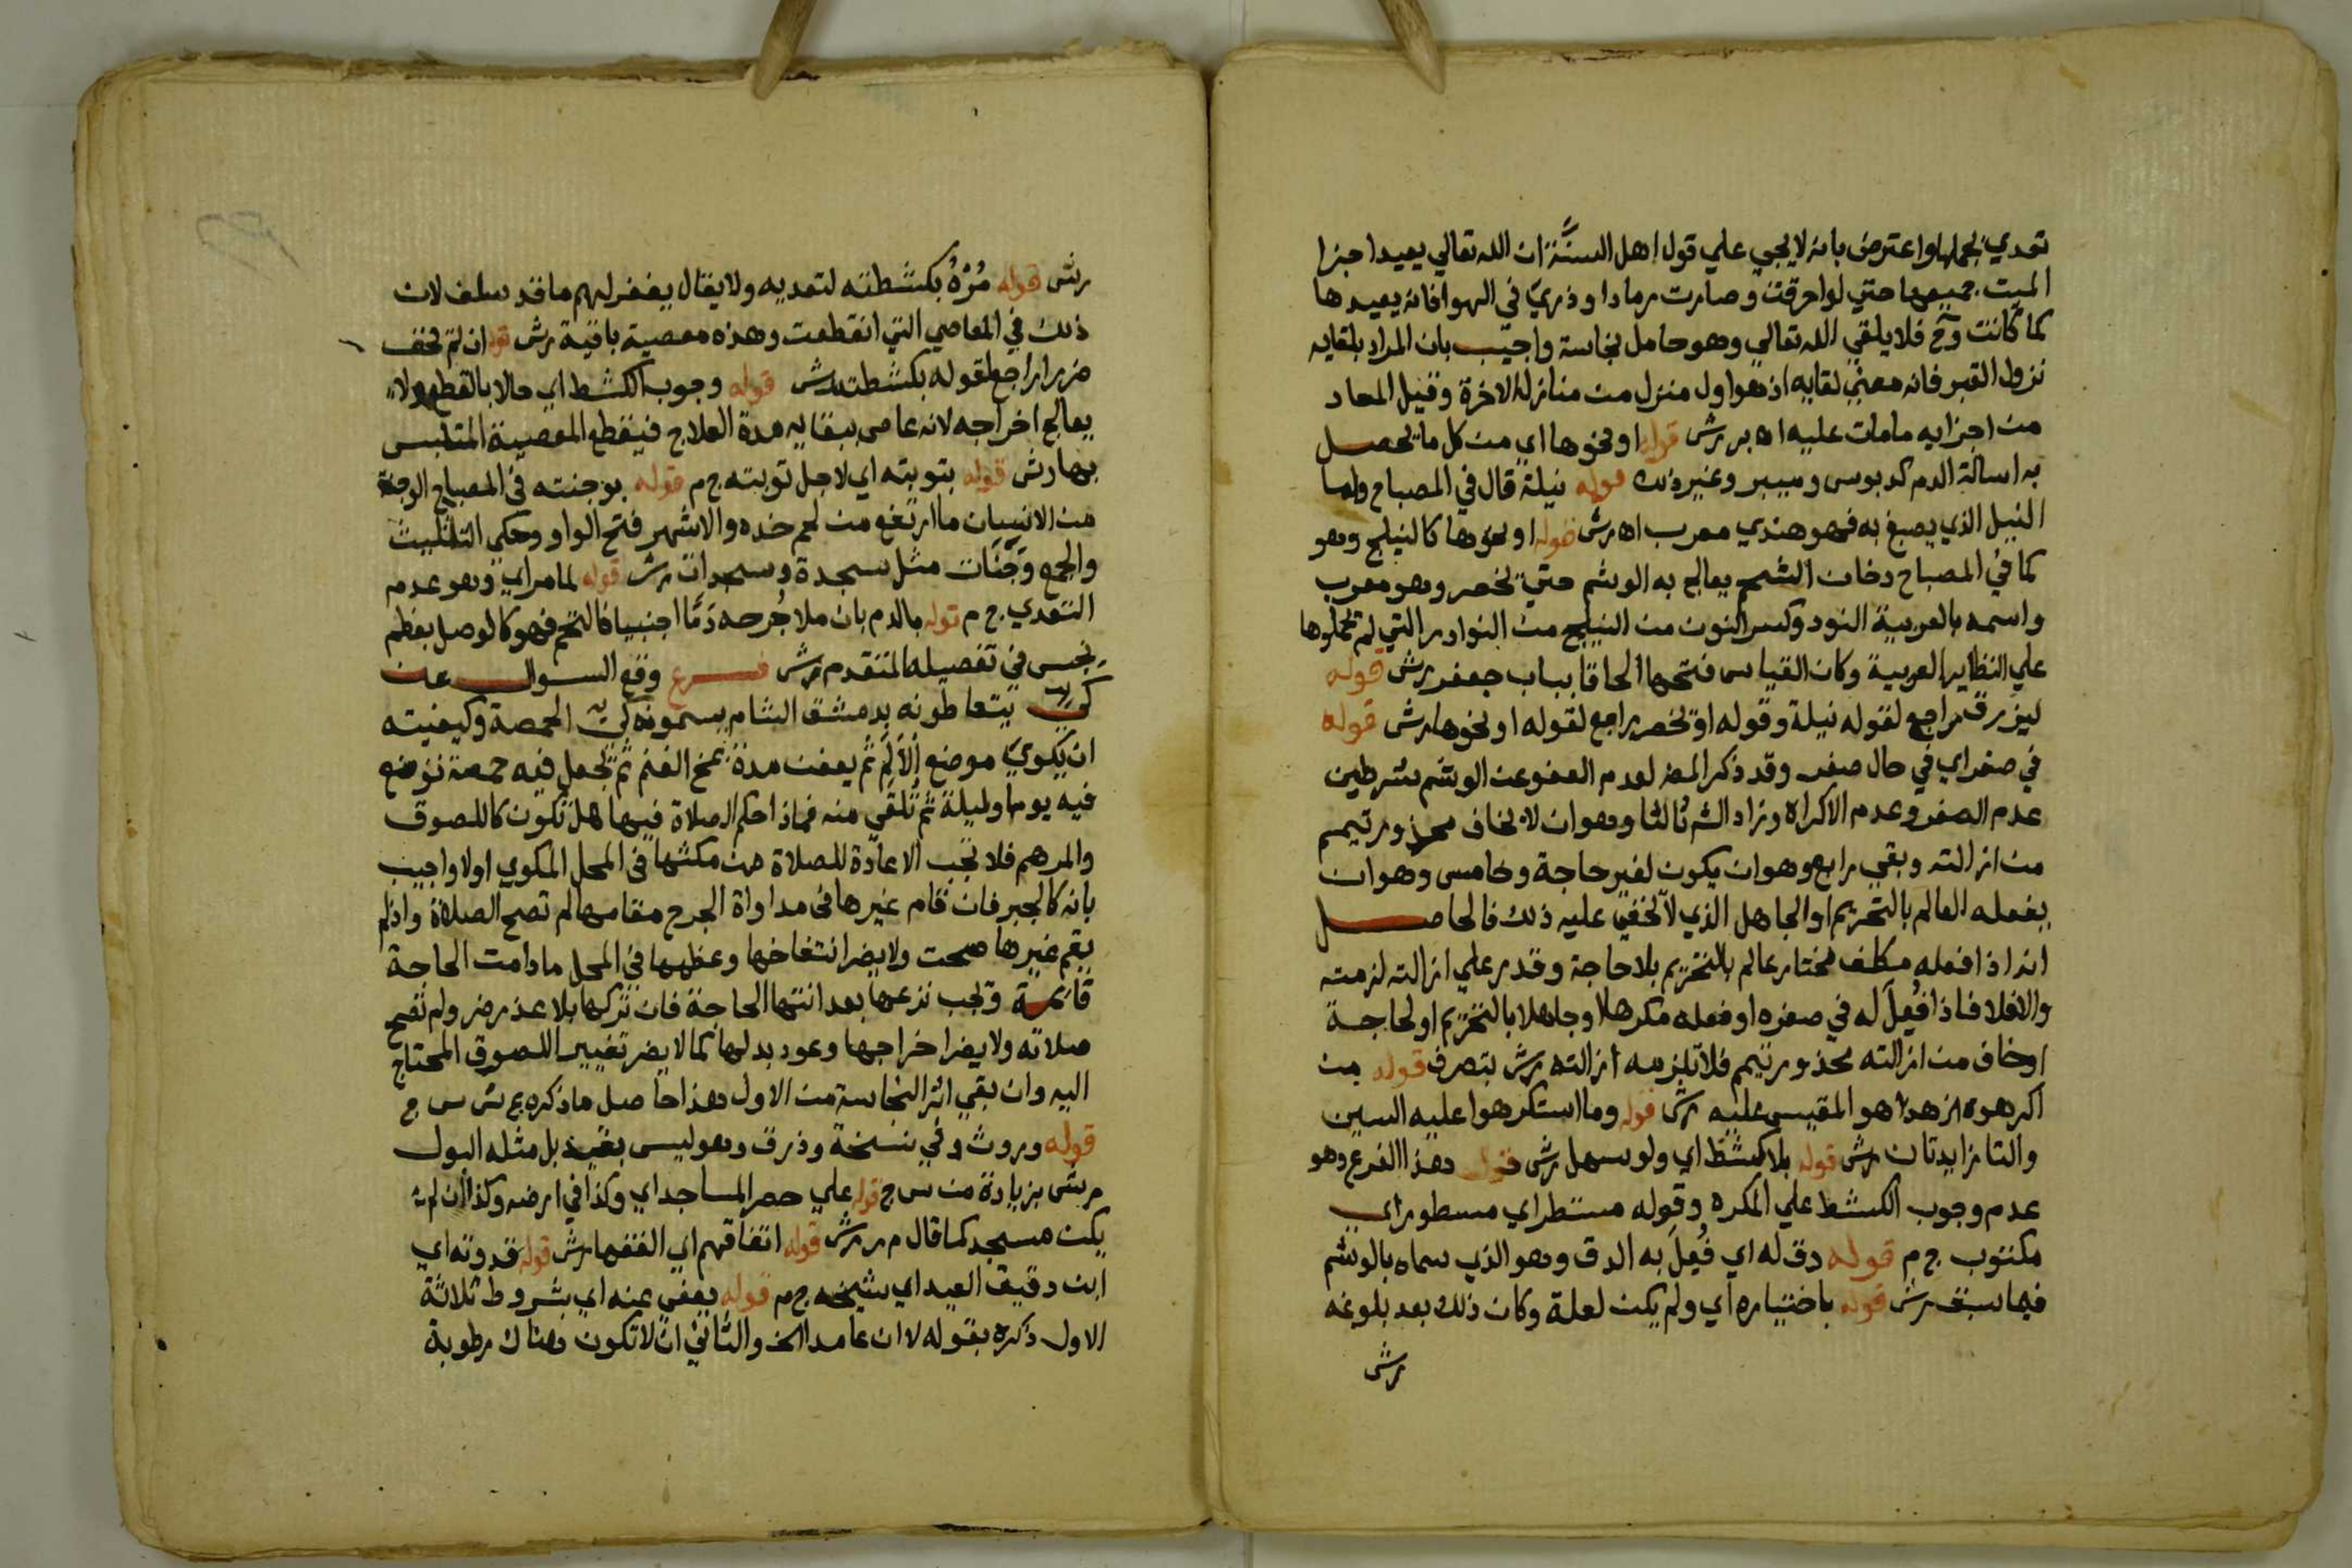 تعدي بحملها واعترض بانه لا يجي علي قول اهل السنَّة ان الله تعالي يعيد اجزا
الميت جميعها حتي لو احرقت وصارت رمادا وذري في الهوا فانه يعيدها
كما كانت وح فلا يلقي الله تعالي وهو حامل نجاسة واجيب بان المراد بلقايه
نزول القبر فانه معني لقايه اذ هو اول منزل من منازل الاخرة وقيل المعاد
من اجزايه ما مات عليه اه بر رش قوله او نحوها اي من كل ما يحصل
به اسالة الدم كدبوس ومبير وغير ذلك قوله نيلة قال في المصباح واما
النيل الذي يصبغ به فهو هندي معرب اه رش قوله او نحوها كالنيلج وهو
كما في المصباح دخان الشحم يعالج به الوشم حتي يخضر وهو معرب
واسمه بالعربية النود وكسر النون من النيلج من النوادر التي لم يحملوها
علي النظاير العربية وكان القياس فتحها الحاقا بباب جعفر رش قوله
ليزرق راجع لقوله نيلة وقوله او يخضر راجع لقوله او نحوها رش قوله
في صغر اي في حال صغر وقد ذكر المص لعدم العفو عن الوشم شرطين
عدم الصغر وعدم الاكراه وزاد الش ثالثا وهو ان لا يخاف محذور تيمم
من ازالته وبقي رابع وهو ان يكون لغير حاجة وخامس وهو ان
يفعله العالم بالتحريم او الجاهل الذي لا يخفي عليه ذلك فالحاصل
انه اذا فعله مكلف مختار عالم بالتحريم بلا حاجة وقدر علي ازالته لزمته
والا فلا فاذا فُعِلَ له في صغره او فعله مكرها او جاهلا بالتحريم او لحاجة
او خاف من ازالته محذور تيمم فلا تلزمه ازالته رش بتصرف قوله من
اكرهوه ازهد هو المقيس عليه رش قوله وما استكرهوا عليه السين
والتا زايدتان رش قوله بلا كشط اي ولو سهل رش قوله وهذا الفرع وهو
عدم وجوب الكشط علي المكره وقوله مستطر اي مسطور اي
مكتوب ج م قوله دق له اي فُعِلَ به الدق وهو الذي سماه بالوشم
فيما سبق رش قوله باختياره اي ولم يكن لعلة وكان ذلك بعد بلوغه
رش
رش قوله مُرْهُ بكشطته لتعديه ولا يقال يغفر لهم ما قد سلف لان
ذلك في المعاصي التي انقطعت وهذه معصية باقية رش قوله ان لم يخف
ضررا راجع لقوله بكشطته رش قوله وجوب الكشط اي حالا بالقطع ولا
يعالج اخراجه لانه عاص ببقايه مدة العلاج فيقطع المعصية المتلبس
بها رش قوله بتوبته اي لاجل توبته ج م قوله بوجنته في المصباح الوجنة
من الانسان ما ارتفع من لحم خده والاشهر فتح الواو وحكي التثليث
والجمع وَجَنَات مثل سجدة وسجدات رش قوله لما مر اي وهو عدم
التعدي ج م قوله بالدم بان ملا جُرحه دَمًا اجنبيا فالتحم فهو كالوصل بعظم
نجس في تفصيله المتقدم رش فرع وقع السوال عن
كي يتعاطونه بدمشق الشام يسمونه كي الحمصة وكيفيته
ان يكوي موضع الاَلَم ثم يعفن مدة بمخ الغنم ثم يجعل فيه حمصة توضع
فيه يوما وليلة ثم تلقي منه فماذا حكم الصلاة فيها هل تكون كاللصوق
والمرهم فلا تجب الاعادة للصلاة من مكثها في المحل المكوي اولا واجيب
بانه كالجبر فان قام غيرها في مداواة الجرح مقامها لم تصح الصلاة واذ لم
يقم غيرها صحت ولا يضر انتفاخها وعظمها في المحل ما دامت الحاجة
قائمة ويجب نزعها بعد انتها الحاجة فان تركها بلا عذر ضر ولم تصح
صلاته ولا يضر اخراجها وعود بدلها كما لا يضر تغيير اللصوق المحتاج
اليه وان بقي اثر النجاسة من الاول وهذا حاصل ما ذكره ع ش س ج
قوله وروث وفي نسخة وذرق وهو ليس بقيد بل مثله البول
رش بزيادة من س ج قوله علي حصر المساجد اي وكذا في ارضه وكذا ان لم
يكن مسجد كما قال م ر رش قوله اتفاقهم اي الفقها رش قوله قدوته اي
ابن دقيق العيد اي شيخه ج م قوله يعفي عنه اي بشروط ثلاثة
الاول ذكره بقوله لا ان عامدا الخ والثاني ان لا تكون هناك رطوبة